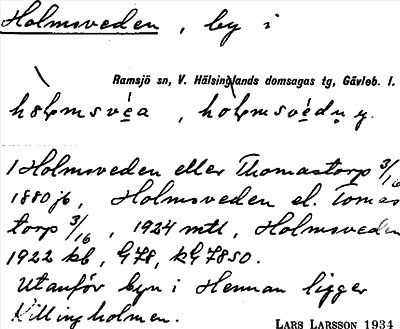 Holmsveden, by i
Ramsjö sn, V. Hälsinglands domsagas tg, Gävleb. l.
hɷlmsvéa, hɷlmsvédn̥ y.
1 Holmsveden eller Thomastorp 3/16
1880 jb, Holmsveden el. Tomas
torp 3/16, 1924 mtl, Holmsveden
1922 kb, G 78, kG 7850.
Utanför byn i Hennan ligger
Killingholmen.
LARS LARSSON 1934